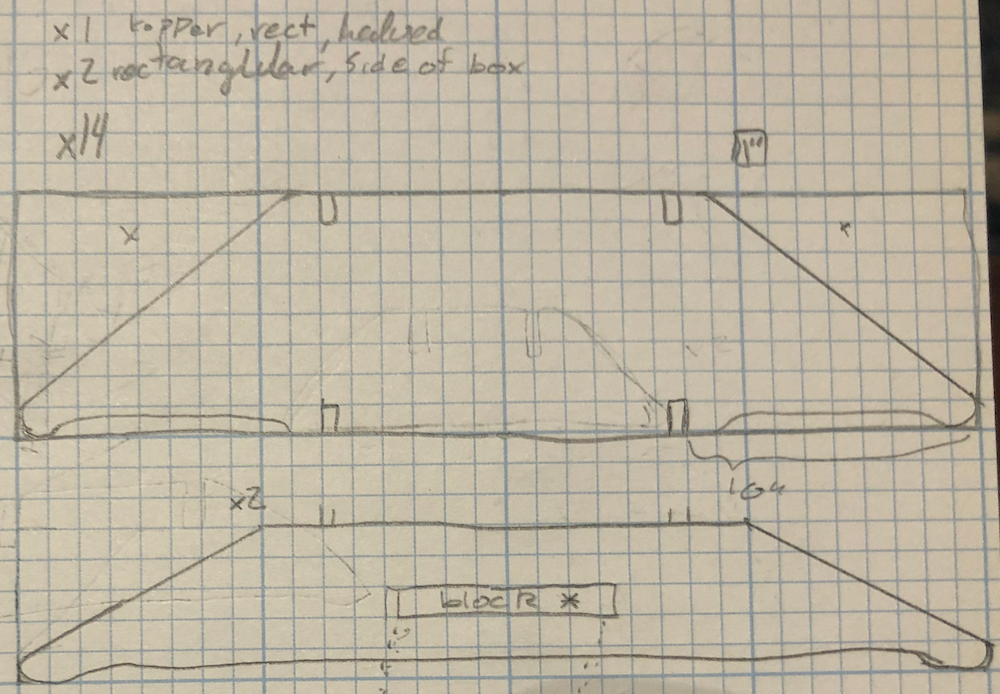 x1 topper, rect, halved
x2 rectanglular, side of box
x14
1"
x2
block *